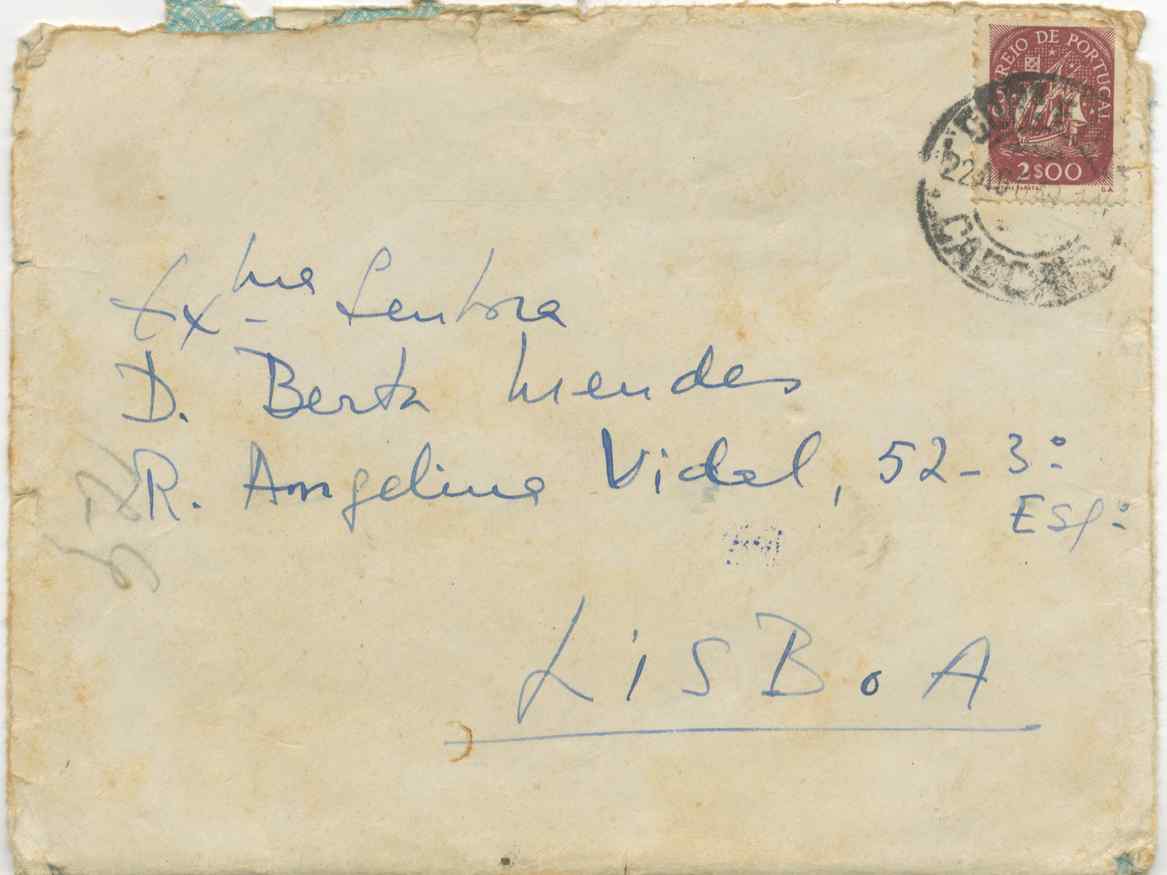 CORREIO DE PORTUGAL
2$00
Exma Senhora
D. Berta Mendes
R. Angelina Vidal, 52-3º
Esqº
LISBOA